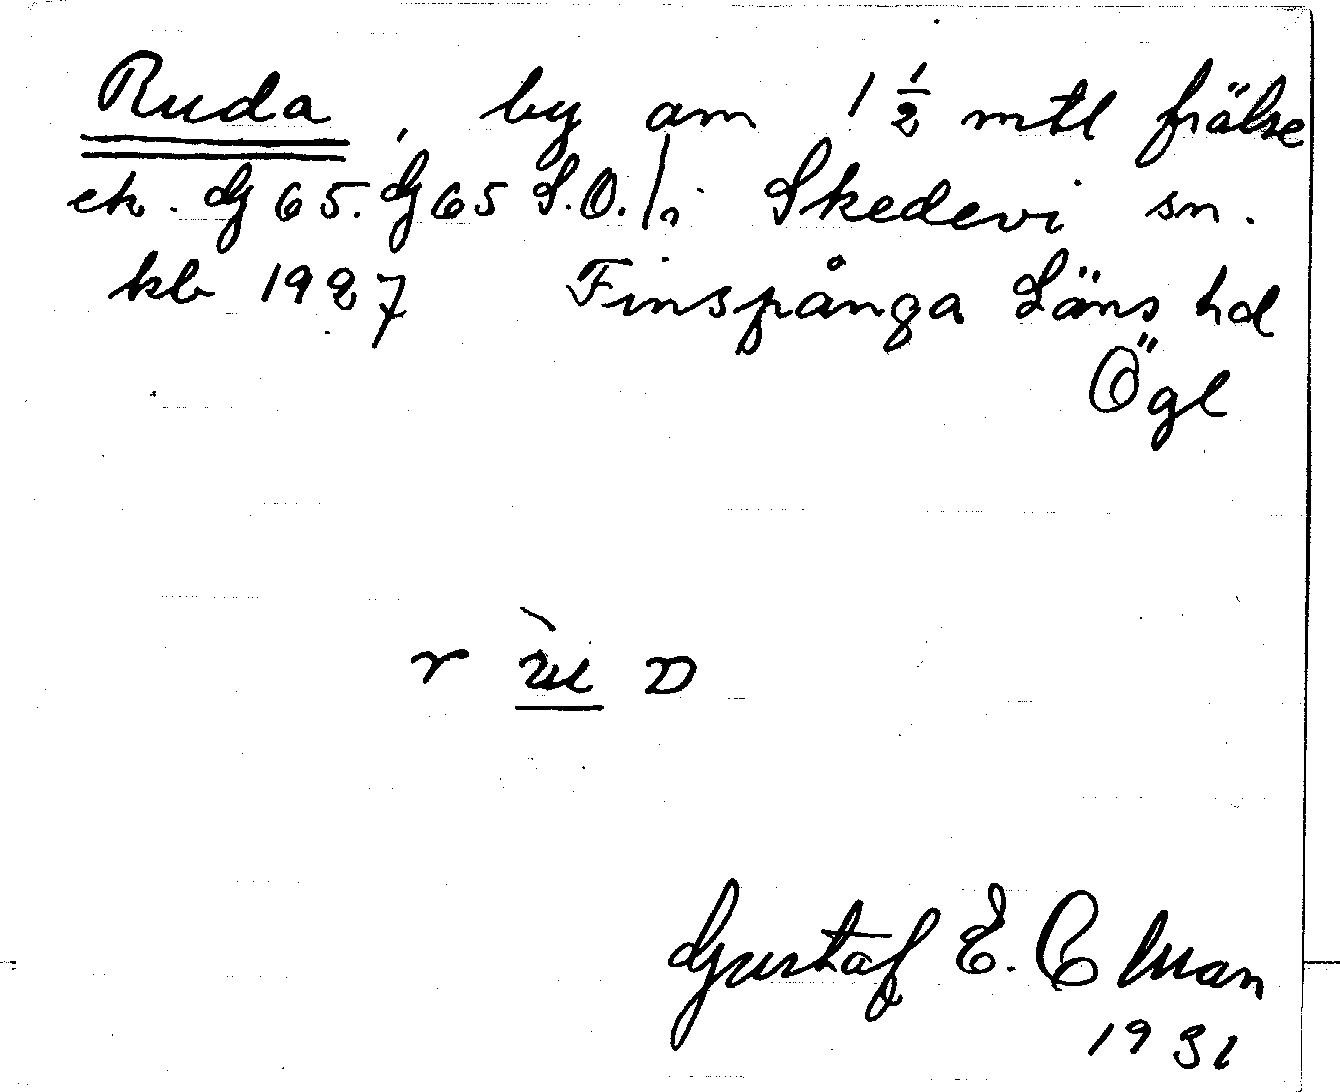 Ruda, by om 1 1/2 mtl frälse
ek. G 65. G 65 S.O. / i Skedevi sn.
kb 1927 Finspånga Läns hd
Ögl
r ù D
Gustaf E.
1931